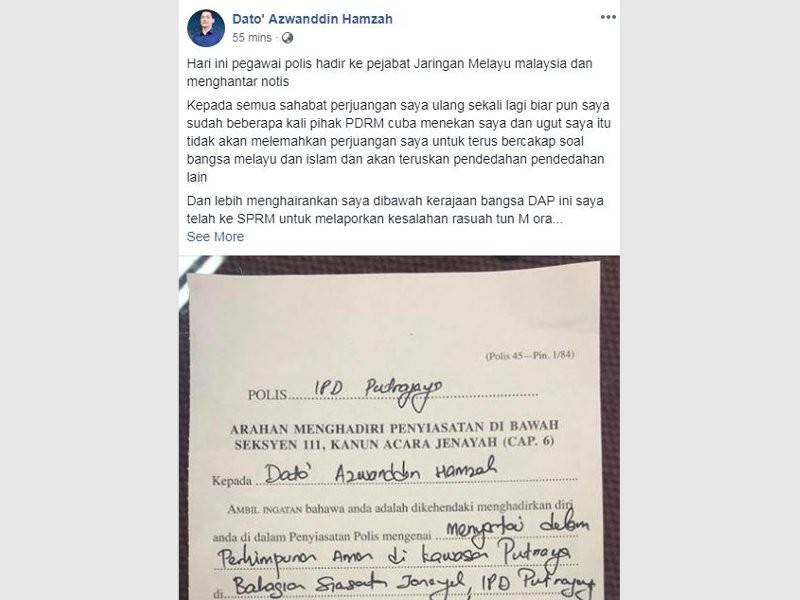 Dato' Azwanddin Hamzah
55 mins ·
Hari ini pegawai polis hadir ke pejabat Jaringan Melayu malaysia dan
menghantar notis
Kepada semua sahabat perjuangan saya ulang sekali lagi biar pun saya
sudah beberapa kali pihak PDRM cuba menekan saya dan ugut saya itu
tidak akan melemahkan perjuangan saya untuk terus bercakap soal
bangsa melayu dan islam dan akan teruskan pendedahan pendedahan
lain
Dan lebih menghairankan saya dibawah kerajaan bangsa DAP ini saya
telah ke SPRM untuk melaporkan kesalahan rasuah tun M ora...
See More
(Polis 45—Pin. 1/84)
POLIS IPD Putrajaya
ARAHAN MENGHADIRI PENYIASATAN DI BAWAH
SEKSYEN 111, KANUN ACARA JENAYAH (CAP. 6)
Kepada Dato' Azwanddin Hamzah
AMBIL INGATAN bahawa anda adalah dikehendaki menghadirkan diri
anda di dalam Penyiasatan Polis mengenai menyertai dalam
Perhimpunan Aman di kawasan Putrajaya
di Bahagian Siasatan Jenayah, IPD Putrajaya